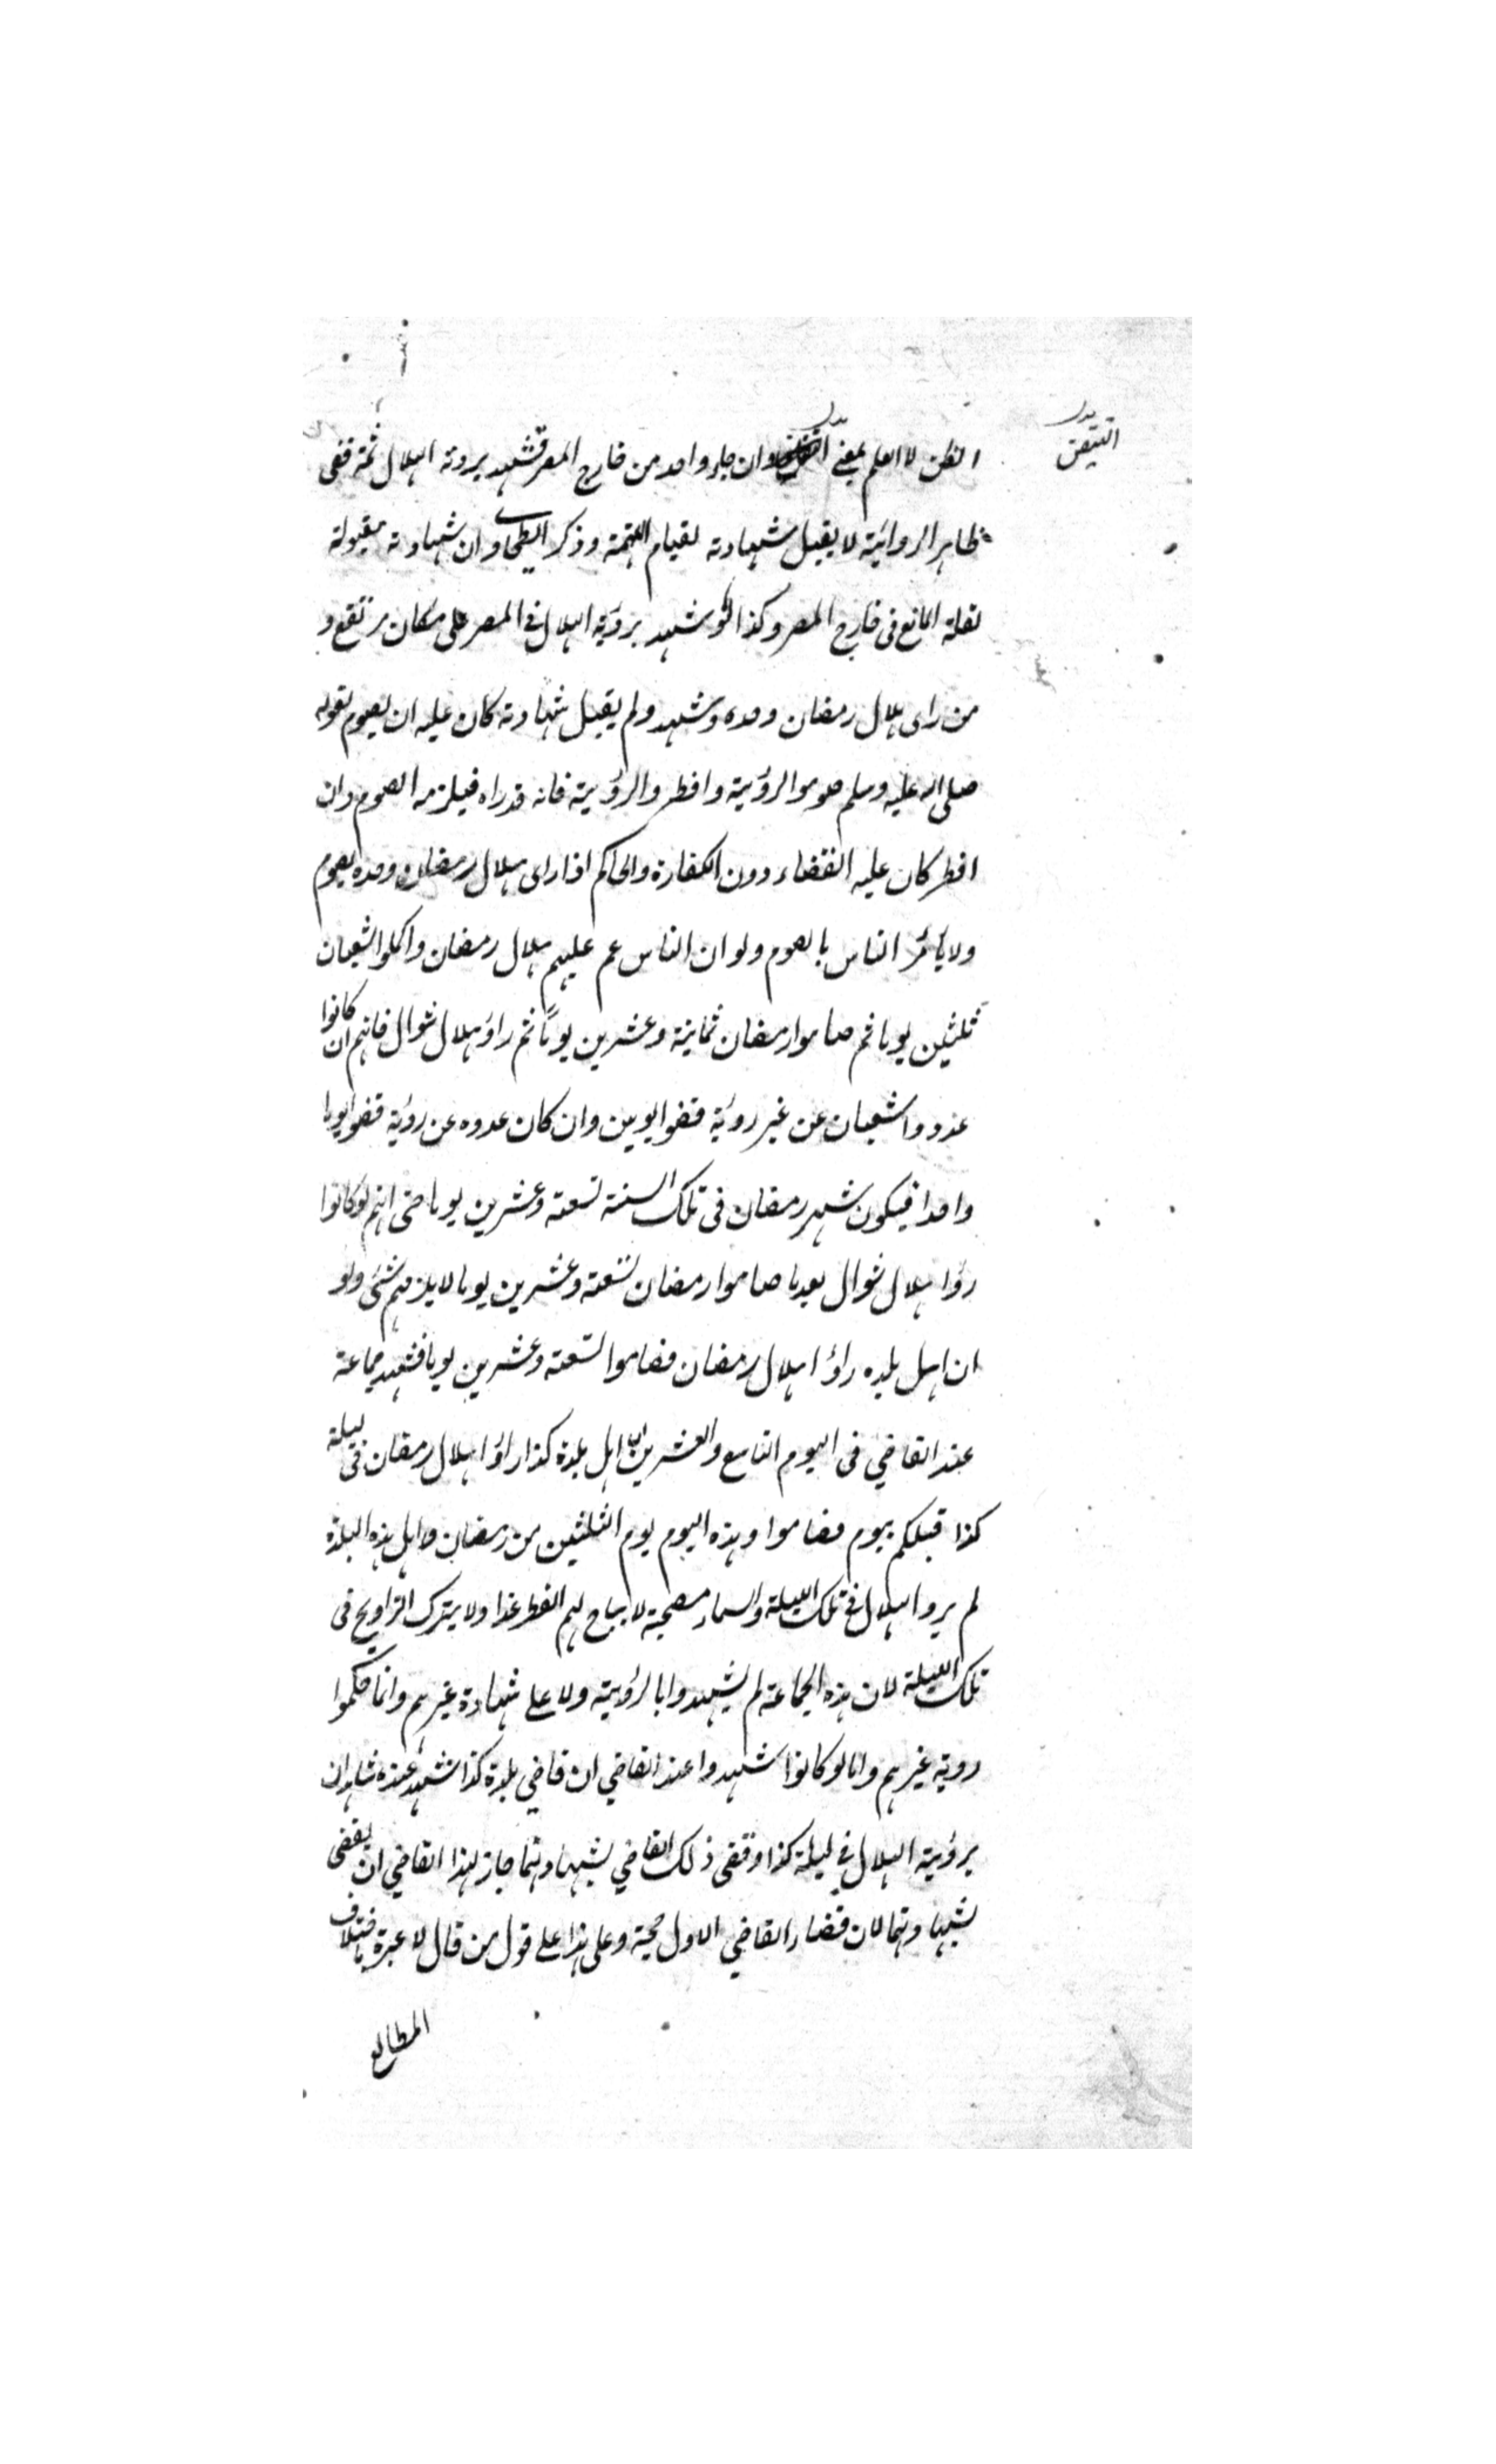 التيقن
الظن لا العلم بمعنى وان جاء واحد من خارج المصر فشهد بروية الهلال ثمه ففى
ظاهر الرواية لا يقبل شهادته لقيام التهمة وذكر الطحاوى ان شهادته مقبولة
لقلة المانع فى خارج المصر وكذا لو شهد برؤية الهلال فى المصر على مكان مرتفع و
من راى هلال رمضان وحده وشهد ولم يقبل شهادته كان عليه ان يصوم لقوله
صلى الله عليه وسلم صوموا لرؤيته وافطروا لرؤيته فانه قد راه فيلزمه الصوم وان
افطر كان عليه القضاء دون الكفارة والحاكم اذا راى هلال رمضان وحده يصوم
ولا يأمر الناس بالصوم ولو ان الناس غم عليهم هلال رمضان واكملوا شعبان
ثلثين يوما ثم صاموا رمضان ثمانية وعشرين يوماً ثم راؤ هلال شوال فانهم ان كانوا
عدوا شعبان عن غير روية قضوا يومين وان كان عدوه عن رؤية قضوا يوما
واحدا فيكون شهر رمضان فى تلك السنة تسعة وعشرين يوما حتى انهم لو كانوا
رؤا هلال شوال بعد ما صاموا رمضان تسعة وعشرين يوما لا يلزمهم شئ ولو
ان اهل بلده راؤا هلال رمضان فصاموا تسعة وعشرين يوما فشهد جماعة
عند القاضي فى اليوم التاسع والعشرين ان اهل بلدة كذا راؤا هلال رمضان فى ليلة
كذا قبلكم بيوم فصاموا وهذه اليوم يوم الثلثين من رمضان واهل هذه البلدة
لم يروا الهلال فى تلك الليلة والسماء مصحية لا يباح لهم الفطر غدا ولا يترك التراويح فى
تلك الليلة لان هذه الجماعة لم يشهدوا بالرؤية ولا على شهادة غيرهم وانما حكموا
روية غيرهم واما لو كانوا شهدوا عند القاضي ان قاضي بلدة كذا شهد عنده شاهدان
برؤية الهلال فى ليلة كذا وقضى ذلك القاضي بشهادتهما جاز لهذا القاضي ان يقضى
بشهادتهما لان قضاء القاضي الاول حجة وعلى هذا على قول من قال لا عبرة باختلاف
المطالع